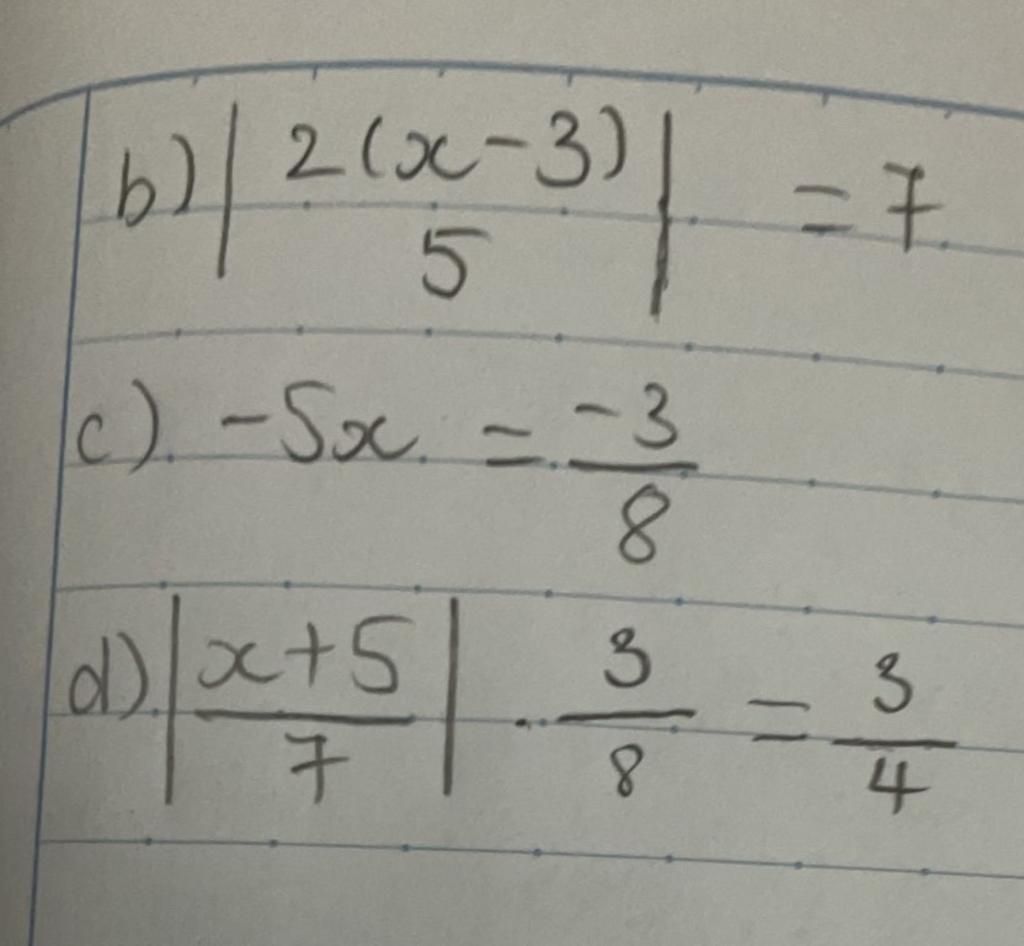 b) | 2(x-3) / 5 | = 7
c) -5x = -3 / 8
d) | x+5 / 7 | · 3 / 8 = 3 / 4